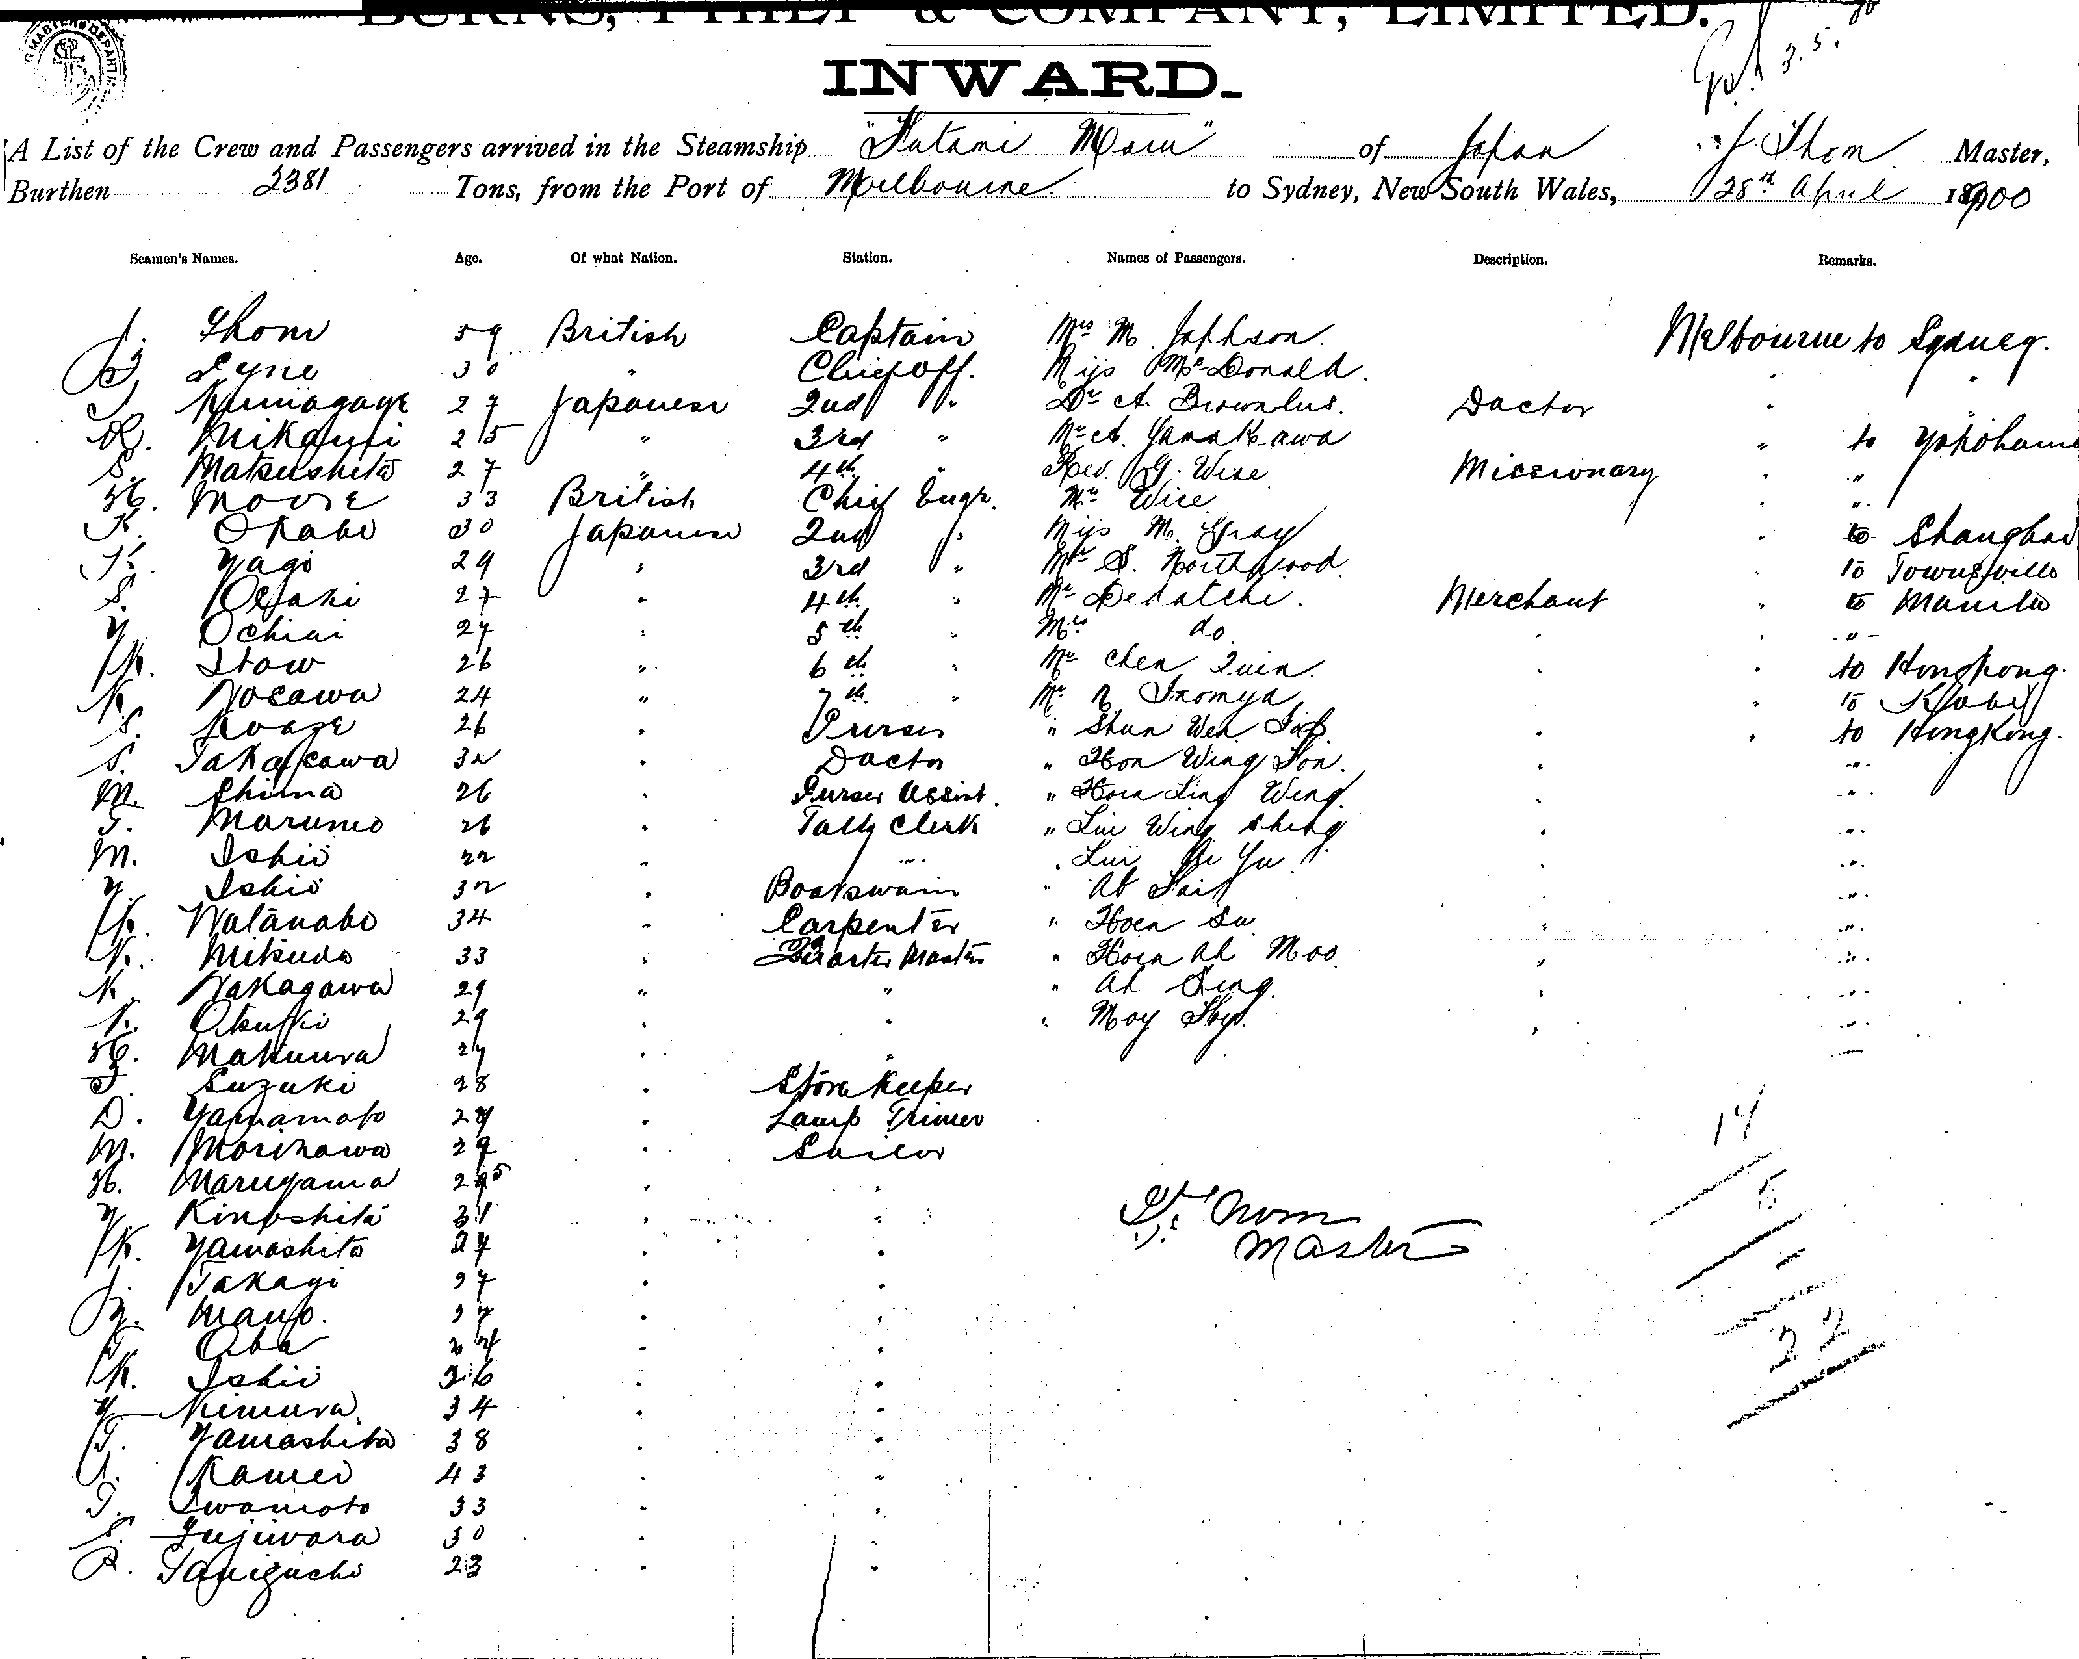 BURNS, PHILP & COMPANY, LIMITED.
INWARD.
3.5.
A List of the Crew and Passengers arrived in the Steamship "Futami Maru" of Japan J Thom Master,
Burthen 2381 Tons, from the Port of Melbourne to Sydney, New South Wales, 28th April 1900
Seamen's Names. Age. Of what Nation. Station. Names of Passengers. Description. Remarks.
J. Thom 59 British Captain Mrs M. Melbourne to Sydney.
Lyne 30 " Chief Off. Miss McDonald. " "
2nd " Dr A. Doctor "
27 Japanese
K. Mikami 25 " 3rd " Mr A. Yanakawa " to Yokohama
S. Matsushita 27 " 4th " Rev. G. Wise Missionary " "
H. Moore 33 British Chief Engr. Mrs Wise " "
K. Okabe 30 Japanese 2nd " Miss M. Gray " to Shanghai
K. Yagi 29 " 3rd " S. Northwood " to Townsville
S. Osaki 27 " 4th " Mr Merchant " to Manila
Y. Ochiai 27 " 5th " Mrs do " "
K. Itow 26 " 6th " Mr Chen Quin " " to Hongkong.
K. Nosawa 24 " 7th " Mr n Inomya " to Kobe
S. Koage 26 " Purser " Shun Wen " " to Hongkong.
S. Takagawa 32 " Doctor " Hon Wing Son. " "
M. Shima 26 " Purser Assist. " Hoen Ling Wing. " "
T. Marumo 26 " Tally Clerk " Lui Wing Shing " "
M. Ishii 22 " " " Lui Yu " "
Y. Ishii 32 " Boatswain " Ah " "
K. Watanabe 34 " Carpenter " Hoen Su " "
N. Mitsuda 33 " Quarter Master " Hoen Ah Moo " "
K. Nakagawa 29 " " " Ah Sing. " "
K. 29 " " " Moy " "
H. Makuura 27 " "
T. Suzuki 28 " Store Keeper
D. Yamamoto 29 " Lamp Trimer
M. Morikawa 29 " Sailor
H. Maruyama 25 " "
Y. Kinoshita 31 " "
K. Yamashita 27 " "
J. Takagi 27 " "
Mano. 27 " "
T. Oba 24 " "
K. Ishii 26 " "
Y. Kimura 34 " "
T. Yamashita 38 " "
Kamei 43 " "
T. Iwamoto 33 " "
S. Fujiwara 30 " "
R. Taniguchi 23 " "
J. Thom
Master
14
5
-
22